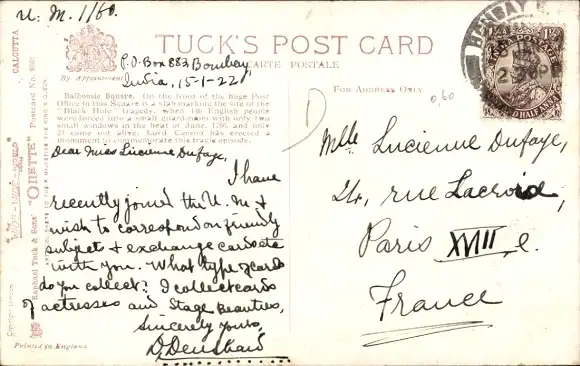 U. M. 1/60.
TUCK'S POST CARD
CARTE POSTALE
By Appointment
P.O. Box 883 Bombay
India, 15-1-22
FOR ADDRESS ONLY
CALCUTTA
Dalhousie Square. On the front of the huge Post
Office in this Square is a slab marking the site of the
"Black Hole" tragedy when 146 English people
were forced into a small guardroom with only two
small windows in the heat of June, 1756, and only
23 came out alive. Lord Curzon has erected a
monument to commemorate this tragic episode.
Dear Miss Lucienne Dufaye,
I have
recently joined the U. M &
wish to correspond on friendly
subjects & exchange cards etc
with you. What type of cards
do you collect? I collect cards
of actresses and Stage Beauties,
Sincerely yours,
D. Denshaw
Mlle Lucienne Dufaye,
rue Lacroix,
Paris XVII e.
France
0,60
BOMBAY
POSTAGE
1½ A
HALF ANNA
"WIDE-WIDE-WORLD"
Raphael Tuck & Sons' "OILETTE"
Printed in England